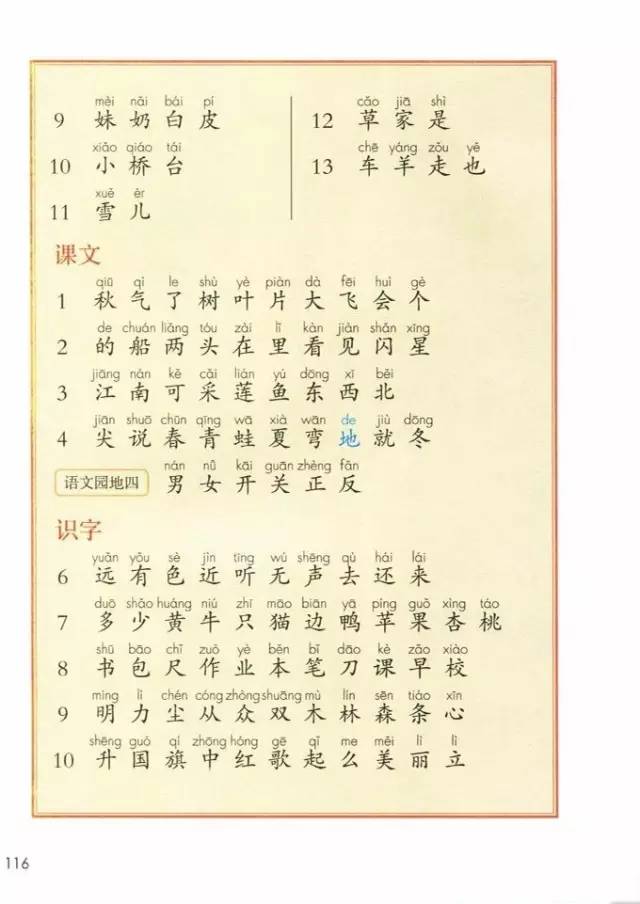 mèi nǎi bái pí
9 妹 奶 白 皮
xiǎo qiáo tái
10 小 桥 台
xuě ér
11 雪 儿
cǎo jiā shì
12 草 家 是
chē yáng zǒu yě
13 车 羊 走 也
课文
qiū qì le shù yè piàn dà fēi huì gè
1 秋 气 了 树 叶 片 大 飞 会 个
de chuán liǎng tóu zài lǐ kàn jiàn shǎn xīng
2 的 船 两 头 在 里 看 见 闪 星
jiāng nán kě cǎi lián yú dōng xī běi
3 江 南 可 采 莲 鱼 东 西 北
jiān shuō chūn qīng wā xià wān de jiù dōng
4 尖 说 春 青 蛙 夏 弯 地 就 冬
nán nǚ kāi guān zhèng fǎn
语文园地四 男 女 开 关 正 反
识字
yuǎn yǒu sè jìn tīng wú shēng qù hái lái
6 远 有 色 近 听 无 声 去 还 来
duō shǎo huáng niú zhī māo biān yā píng guǒ xìng táo
7 多 少 黄 牛 只 猫 边 鸭 苹 果 杏 桃
shū bāo chǐ zuò yè běn bǐ dāo kè zǎo xiào
8 书 包 尺 作 业 本 笔 刀 课 早 校
míng lì chén cóng zhòng shuāng mù lín sēn tiáo xīn
9 明 力 尘 从 众 双 木 林 森 条 心
shēng guó qí zhōng hóng gē qǐ me měi lì lì
10 升 国 旗 中 红 歌 起 么 美 丽 立
116